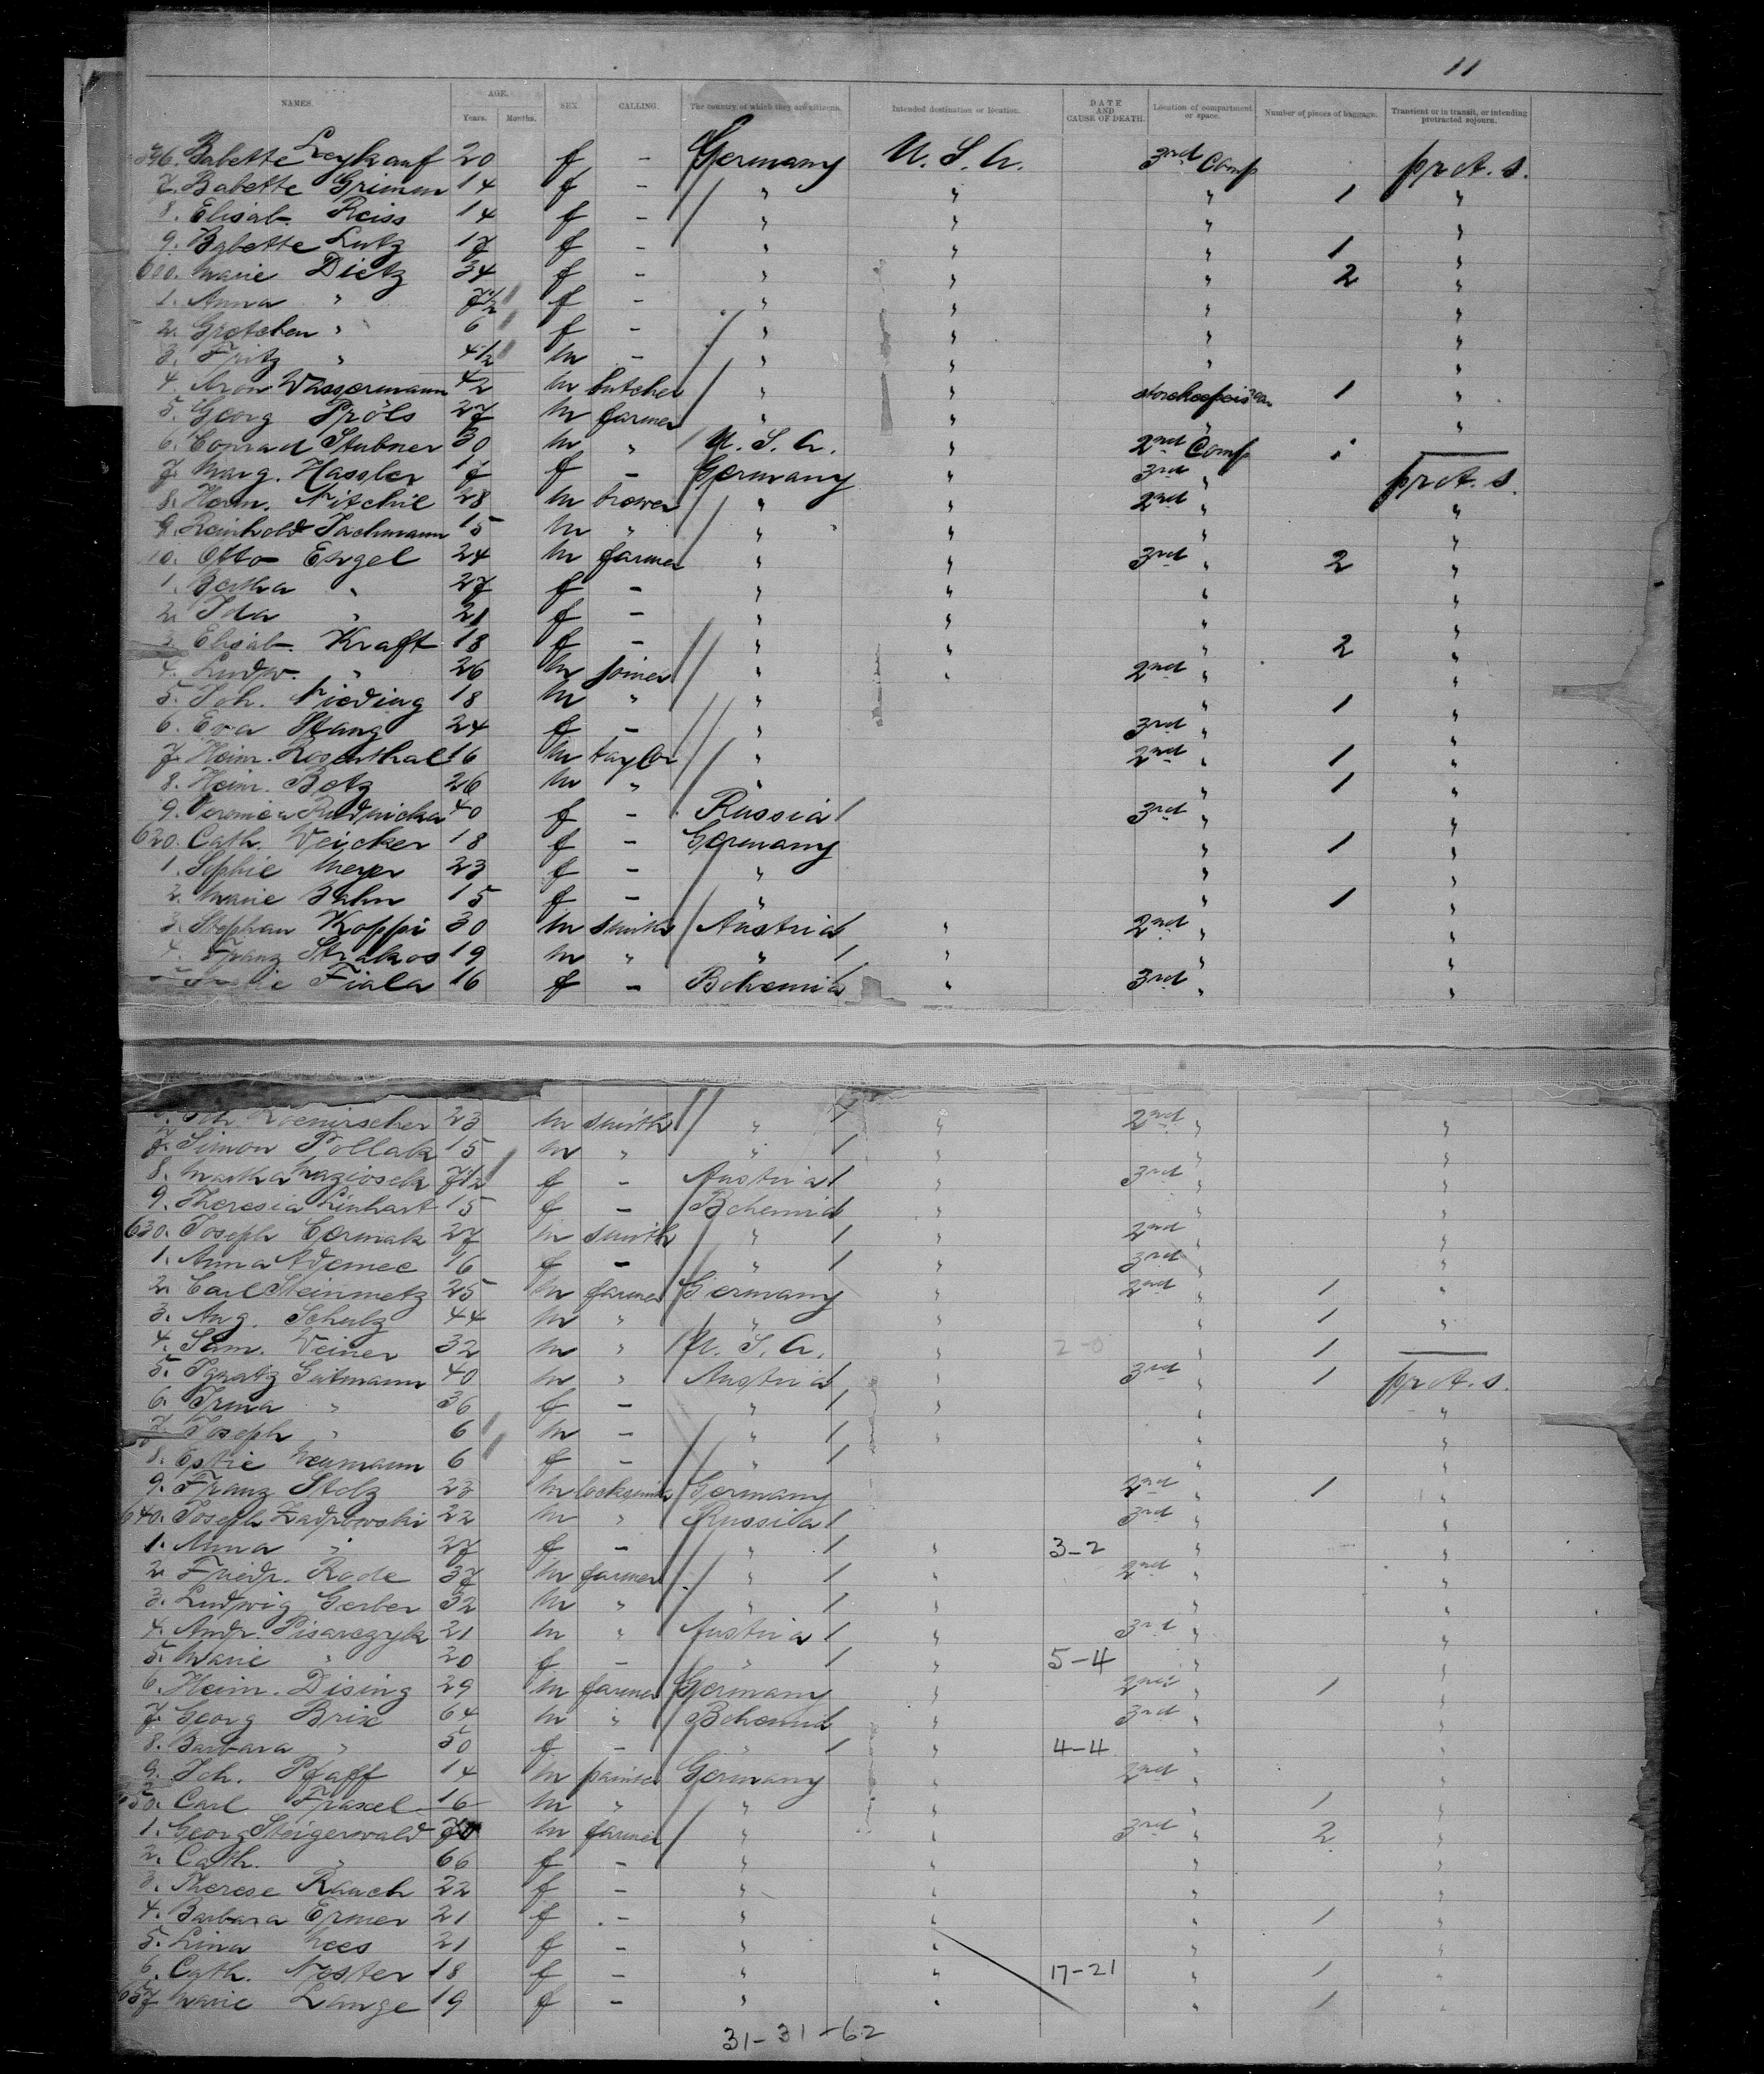 11
NAMES. AGE. Years. Months. SEX CALLING. The country of which they are citizens. Intended destination or location. DATE AND CAUSE OF DEATH. Location of compartment or space. Number of pieces of baggage. Transient or in transit, or intending protracted sojourn.
596. Babette Leykauf 20 f - Germany U. S. A. 3rd Comp prot. s.
7. Babette Grimm 14 f - " " " 1 "
8. Elisab. Reiss 14 f - " " " "
9. Babette Lutz 17 f - " " " 1 "
600. Marie Dietz 34 f - " " " 2 "
1. Anna " 7 1/2 f - " " " "
2. Gretchen " 6 f - " " " "
3. Fritz " 4 1/2 m - " " " "
4. Aron Wassermann 42 m butcher " " 1 "
5. Georg Pröls 27 m farmer " " " "
6. Conrad Stubner 30 m " U. S. A. " 2nd Comp 1 —
7. Marg. Hassler 17 f - Germany " 3rd " prot. s.
8. Herm. Nitchie 28 m brewer " " 2nd " "
9. Reinhold Tachmann 15 m " " " " "
10. Otto Engel 24 m farmer " " 3rd " 2 "
1. Bertha " 27 f - " " " "
2. Ida " 21 f - " " " "
3. Elisab. Kraft 18 f - " " " 2 "
4. Ludw. " 26 m joiner " " 2nd " "
5. Joh. Nieding 18 m " " " 1 "
6. Eva Stang 24 f - " 3rd " "
7. Heinr. Rosenthal 16 m taylor " 2nd " 1 "
8. Heinr. Betz 26 m " " " 1 "
9. Rudnicka 40 f - Russia 3rd " "
620. Cath. Weicker 18 f - Germany " 1 "
1. Sophie Meyer 23 f - " " "
2. Marie Bahn 15 f - " " 1 "
3. Stephan Koppi 30 m smith Austria " 2nd " "
4. Franz Strakos 19 m " " " " "
Fiala 16 f - Bohemia " 3rd " "
23 m smith " " 2nd " "
7. Simon Pollak 15 m " " " " "
8. Martha 7 1/2 f - Austria " 3rd " "
9. Theresia Linhart 15 f - Bohemia " " "
630. Joseph Cermak 27 m smith " " 2nd " "
1. Anna Ademec 16 f - " " 3rd " "
2. Carl Steinmetz 25 m farmer Germany " 2nd " 1 "
3. Aug. Schulz 44 m " " " " 1 "
4. Sam. Weiner 32 m " U. S. A. " 2-0 " 1 —
5. Ignatz Gutmann 40 m " Austria " 3rd " 1 prot. s.
6. Irma " 36 f - " " " "
7. Joseph " 6 m - " " " "
8. Estie Neumann 6 f - " " "
9. Franz Stolz 23 m locksmith Germany 2nd " 1 "
640. Joseph 22 m " Russia 3rd " "
1. Anna " 27 f - " " 3-2 " "
2. Friedr. Rode 37 m farmer " " 2nd " "
3. Ludwig Gerber 32 m " " " " "
4. Andr. Pisarczyk 21 m " Austria " 3rd " "
5. Marie " 20 f - " " 5-4 " "
6. Heinr. Dising 29 m farmer Germany " 2nd " 1 "
7. Georg Brix 64 m " Bohemia " 3rd " "
8. Barbara " 50 f - " " 4-4 " "
9. Joh. Pfaff 14 m painter Germany " 2nd " "
650. Carl Fraxel 16 m " " " " 1 "
1. Georg Steigerwald 70 m farmer " " 3rd " 2 "
2. Cath. " 66 f - " " " "
3. Therese Rauch 22 f - " " " "
4. Barbara Ermer 21 f - " " " 1 "
5. Lina Nees 21 f - " " " "
6. Cath. Nester 18 f - " " 17-21 " 1 "
657 Marie Lange 19 f - " " " 1 "
31-31-62